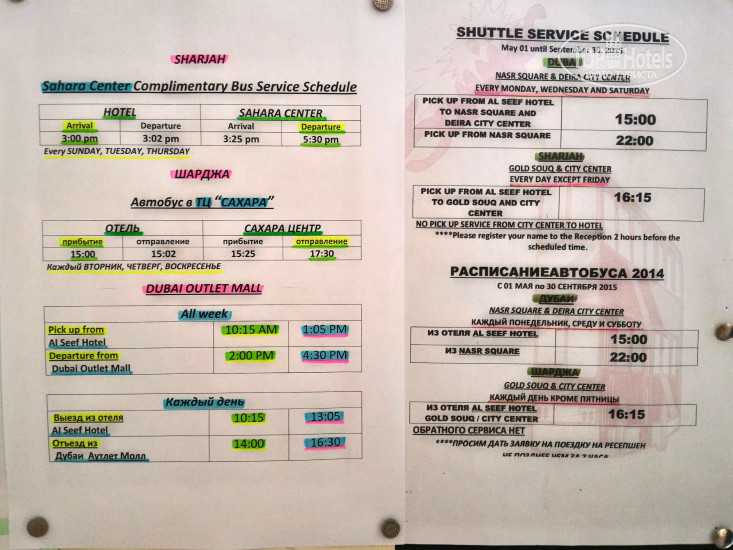 SHARJAH
Sahara Center Complimentary Bus Service Schedule
HOTEL SAHARA CENTER
Arrival Departure Arrival Departure
3:00 pm 3:02 pm 3:25 pm 5:30 pm
Every SUNDAY, TUESDAY, THURSDAY
ШАРДЖА
Автобус в ТЦ "САХАРА"
ОТЕЛЬ САХАРА ЦЕНТР
прибытие отправление прибытие отправление
15:00 15:02 15:25 17:30
Каждый ВТОРНИК, ЧЕТВЕРГ, ВОСКРЕСЕНЬЕ
DUBAI OUTLET MALL
All week
Pick up from 10:15 AM 1:05 PM
Al Seef Hotel
Departure from 2:00 PM 4:30 PM
Dubai Outlet Mall
Каждый день
Выезд из отеля 10:15 13:05
Al Seef Hotel
Отъезд из 14:00 16:30
Дубаи Аутлет Молл
SHUTTLE SERVICE SCHEDULE
May 01 until September 30, 2015
DUBAI
NASR SQUARE & DEIRA CITY CENTER
EVERY MONDAY, WEDNESDAY AND SATURDAY
PICK UP FROM AL SEEF HOTEL
TO NASR SQUARE AND
DEIRA CITY CENTER
15:00
PICK UP FROM NASR SQUARE 22:00
SHARJAH
GOLD SOUQ & CITY CENTER
EVERY DAY EXCEPT FRIDAY
PICK UP FROM AL SEEF HOTEL
TO GOLD SOUQ AND CITY
CENTER
16:15
NO PICK UP SERVICE FROM CITY CENTER TO HOTEL
****Please register your name to the Reception 2 hours before the
scheduled time.
РАСПИСАНИЕАВТОБУСА 2014
С 01 МАЯ по 30 СЕНТЯБРЯ 2015
ДУБАИ
NASR SQUARE & DEIRA CITY CENTER
КАЖДЫЙ ПОНЕДЕЛЬНИК, СРЕДУ И СУББОТУ
ИЗ ОТЕЛЯ AL SEEF HOTEL 15:00
ИЗ NASR SQUARE 22:00
ШАРДЖА
GOLD SOUQ & CITY CENTER
КАЖДЫЙ ДЕНЬ КРОМЕ ПЯТНИЦЫ
ИЗ ОТЕЛЯ AL SEEF HOTEL
GOLD SOUQ / CITY CENTER
16:15
ОБРАТНОГО СЕРВИСА НЕТ
****ПРОСИМ ДАТЬ ЗАЯВКУ НА ПОЕЗДКУ НА РЕСЕПШЕН
НЕ ПОЗДНЕЕ ЧЕМ ЗА 2 ЧАСА